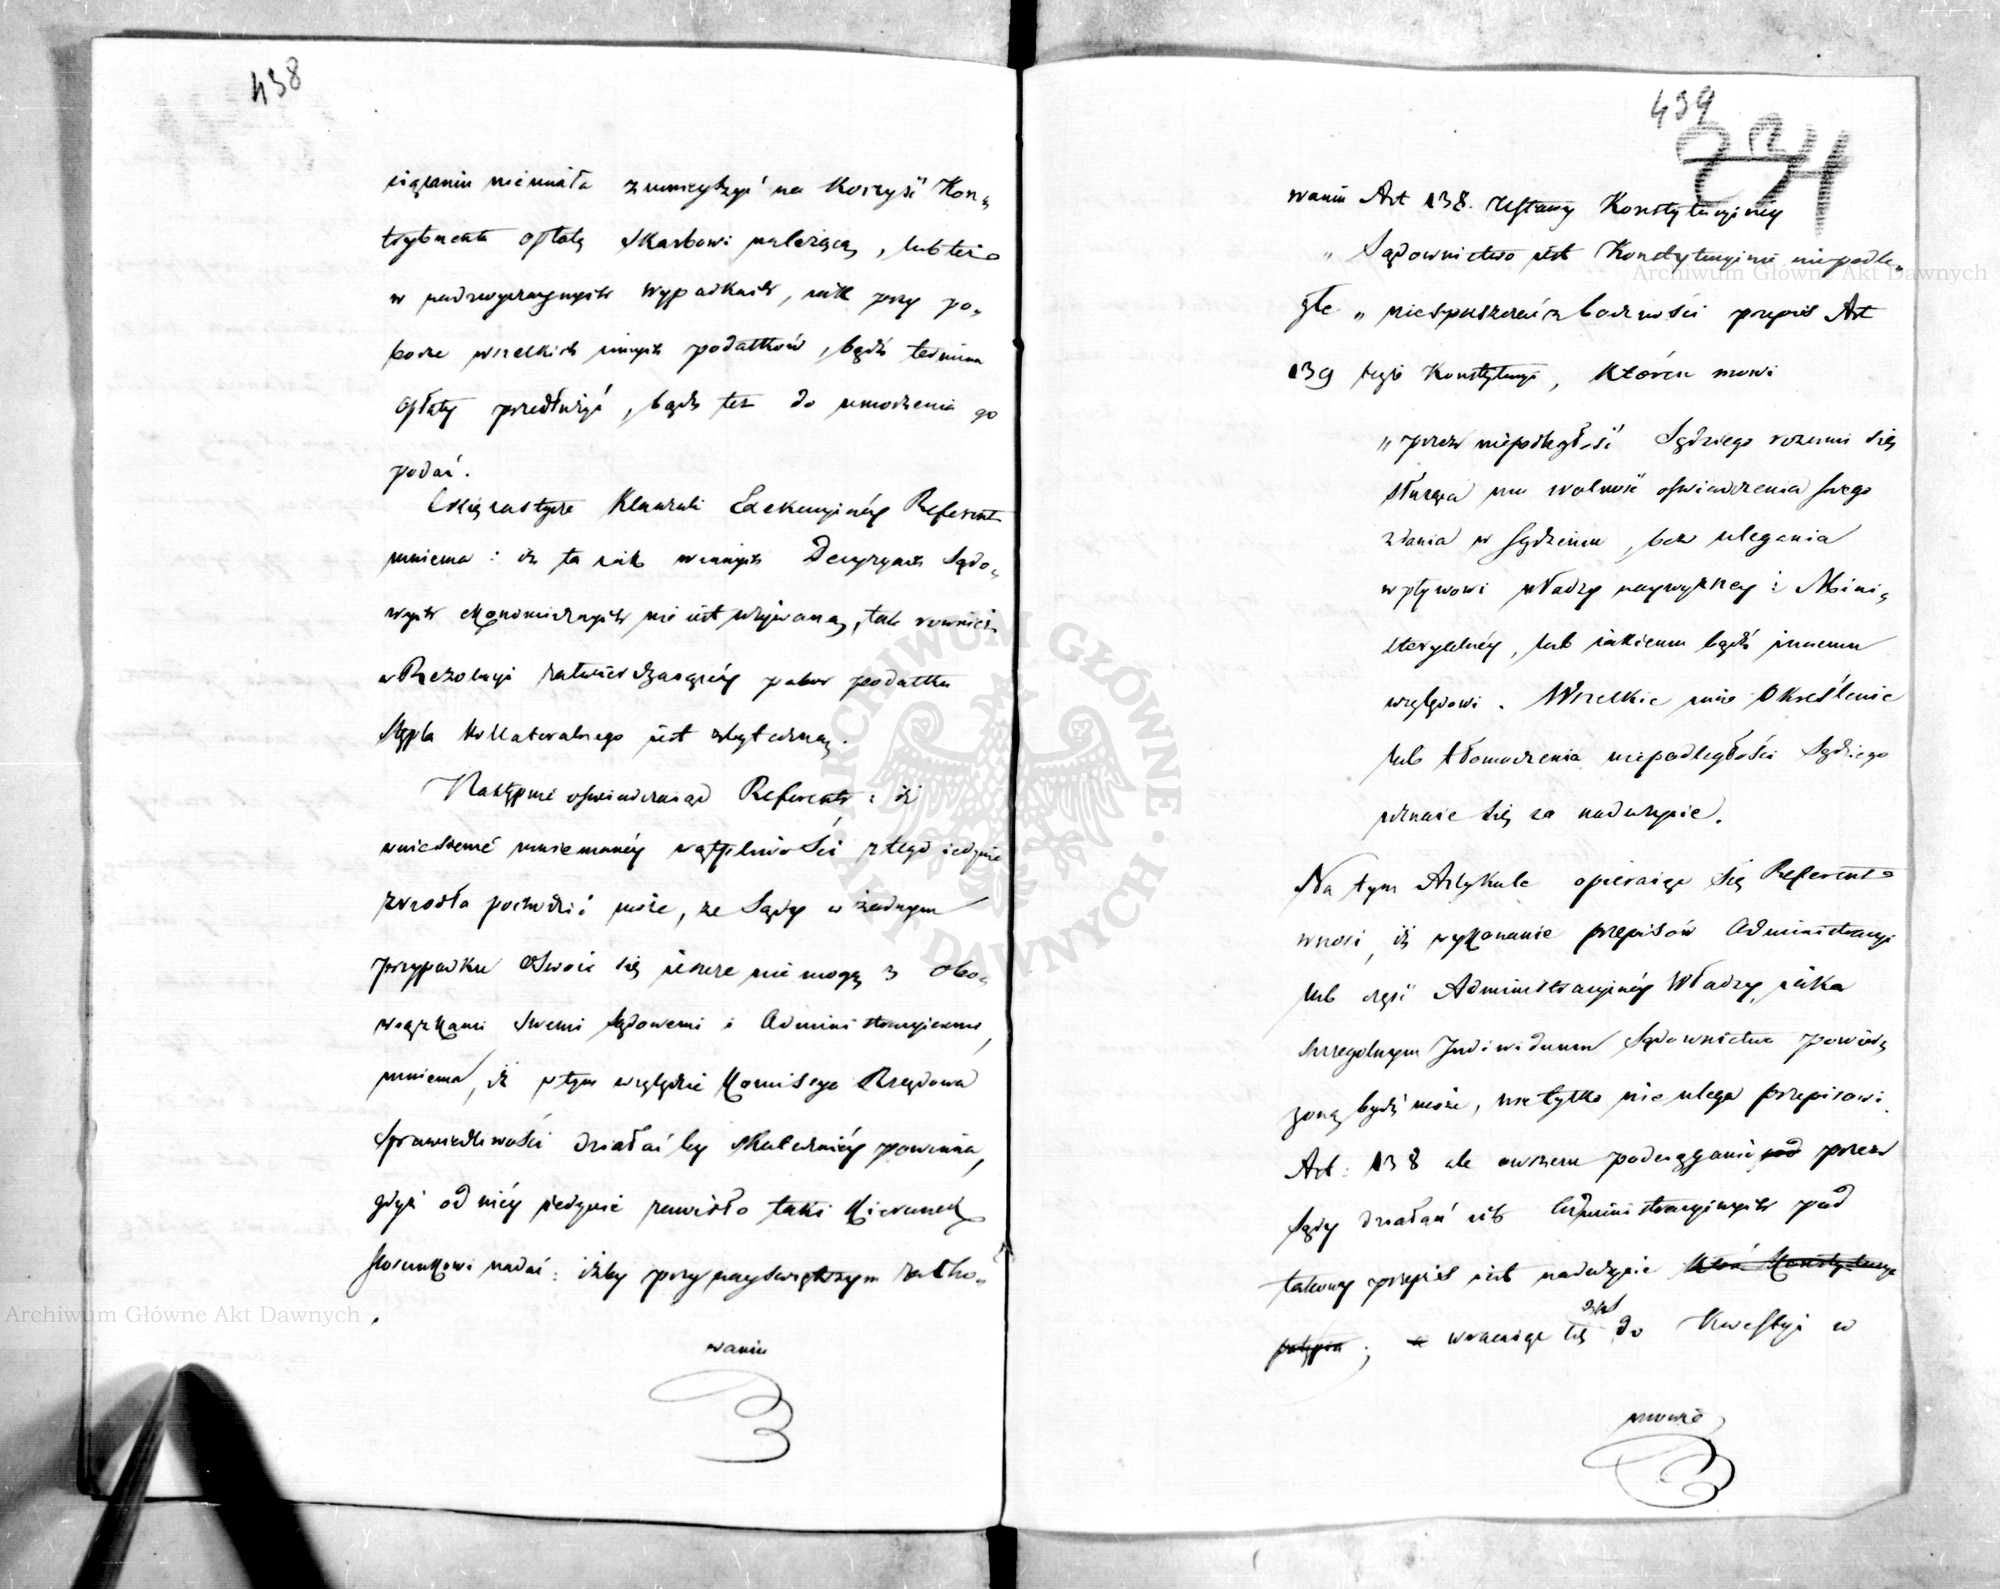 438
ciązaniu nie miała zmnieyszyć na korzyść Kon„
trybuenta opłatę Skarbowi należącą, lub też
w nadzwyczaynych wypadkach, iak przy po„
borze wszelkich innych podatków, bądź termin
opłaty przedłużyć, bądź też do umorzenia go
podać.
Klauzuli Exekucyinéy Referent
mniema: iż ta iak w innych Decyzyach Sądo„
wych ekonomicznych nie iest używaną, tak również
w Rezolucyi zatwierdzaiącéy pobor podatku
Stępla Kollateralnego iest zbyteczną.
Następnie oświadczaiąc Referent: iż
wniesienie mniemanéy wątpliwości z tego iedynie
zrzodła pochodzić może, że Sądy w żadnym
przypadku oswoić się ieszcze nie mogą z obo„
wiązkami swemi Sądowemi i Administracyinemi,
mniema, iż w tym względzie Kommissya Rządowa
Sprawiedliwości działać by skuteczniéy powinna,
gdyż od niéy iedynie zawisło taki kierunek
stosunkowi nadać: iżby przy nayświętszym zacho„
waniu
439
224
waniu Art 138. Ustawy Konstytucyiney
„ Sądownictwo iest Konstytucyinie niepodle„
głe „ niespuszczać z baczności przepis Art
139 teyże Konstytucyi, który mowi
„ przez niepodległość Sędziego rozumi się
służąca mu wolność oświadczenia swego
zdania w sądzeniu, bez ulegania
wpływowi władzy naywyższey i Mini„
steryalnéy, lub iakiemu bądź innemu
względowi. Wszelkie inne określenie
lub tłomaczenie niepodległości Sędziego
uznaie się za nadużycie.
Na tym Artykule opieraiąc się Referent
wnosi, iż wykonanie przepisów Administracyi
lub część Administracyinéy Władzy, iaka
szczegolnym Indiwiduum Sądownictwa powierzo„
zoną bydź może, nie tylko nie ulega przepisowi
Art: 138 ale owszem podciąganie pod przez
Sądy działań ich Administracyinych pod
takowy przepis iest nadużycie która Konstytucya
potępia; wracaiąc się zaś do Kwestyi w